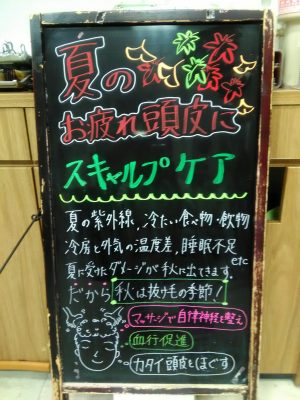 夏の
お疲れ頭皮に
スキャルプケア
夏の紫外線,冷たい食べ物・飲物
冷房と外気の温度差,睡眠不足
etc
夏に受けたダメージが秋に出てきます。
だから秋は抜け毛の季節!
マッサージで自律神経を整え
血行促進
カタイ頭皮をほぐす